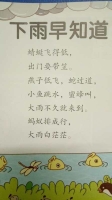 下雨早知道
蜻蜓飞得低，
出门要带笠。
燕子低飞，蛇过道，
小鱼跳水，蜜蜂叫，
大雨不久就来到。
蚂蚁排成行，
大雨白茫茫。